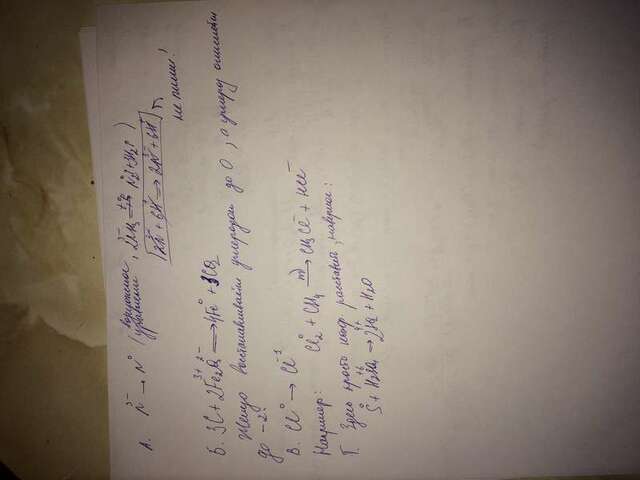 А. N³⁻ → N⁰ (возможное уравнение, 2NH₃ ⇄ N₂⁰ + 3H₂⁰)
не пиши!
Б. 3C + 2Fe₂³⁺O₃²⁻ ⟹ 4Fe⁰ + 3CO₂
Железо восстанавливаем углеродом до 0, а углерод окисляется
до -2.
В. Cl⁰ → Cl⁻¹
Например: Cl₂⁰ + CH₄ → CH₃Cl⁻ + HCl⁻
Г. Здесь просто коэф. расставить, наверное:
S⁰ + H₂SO₄ → 2SO₂ + H₂O